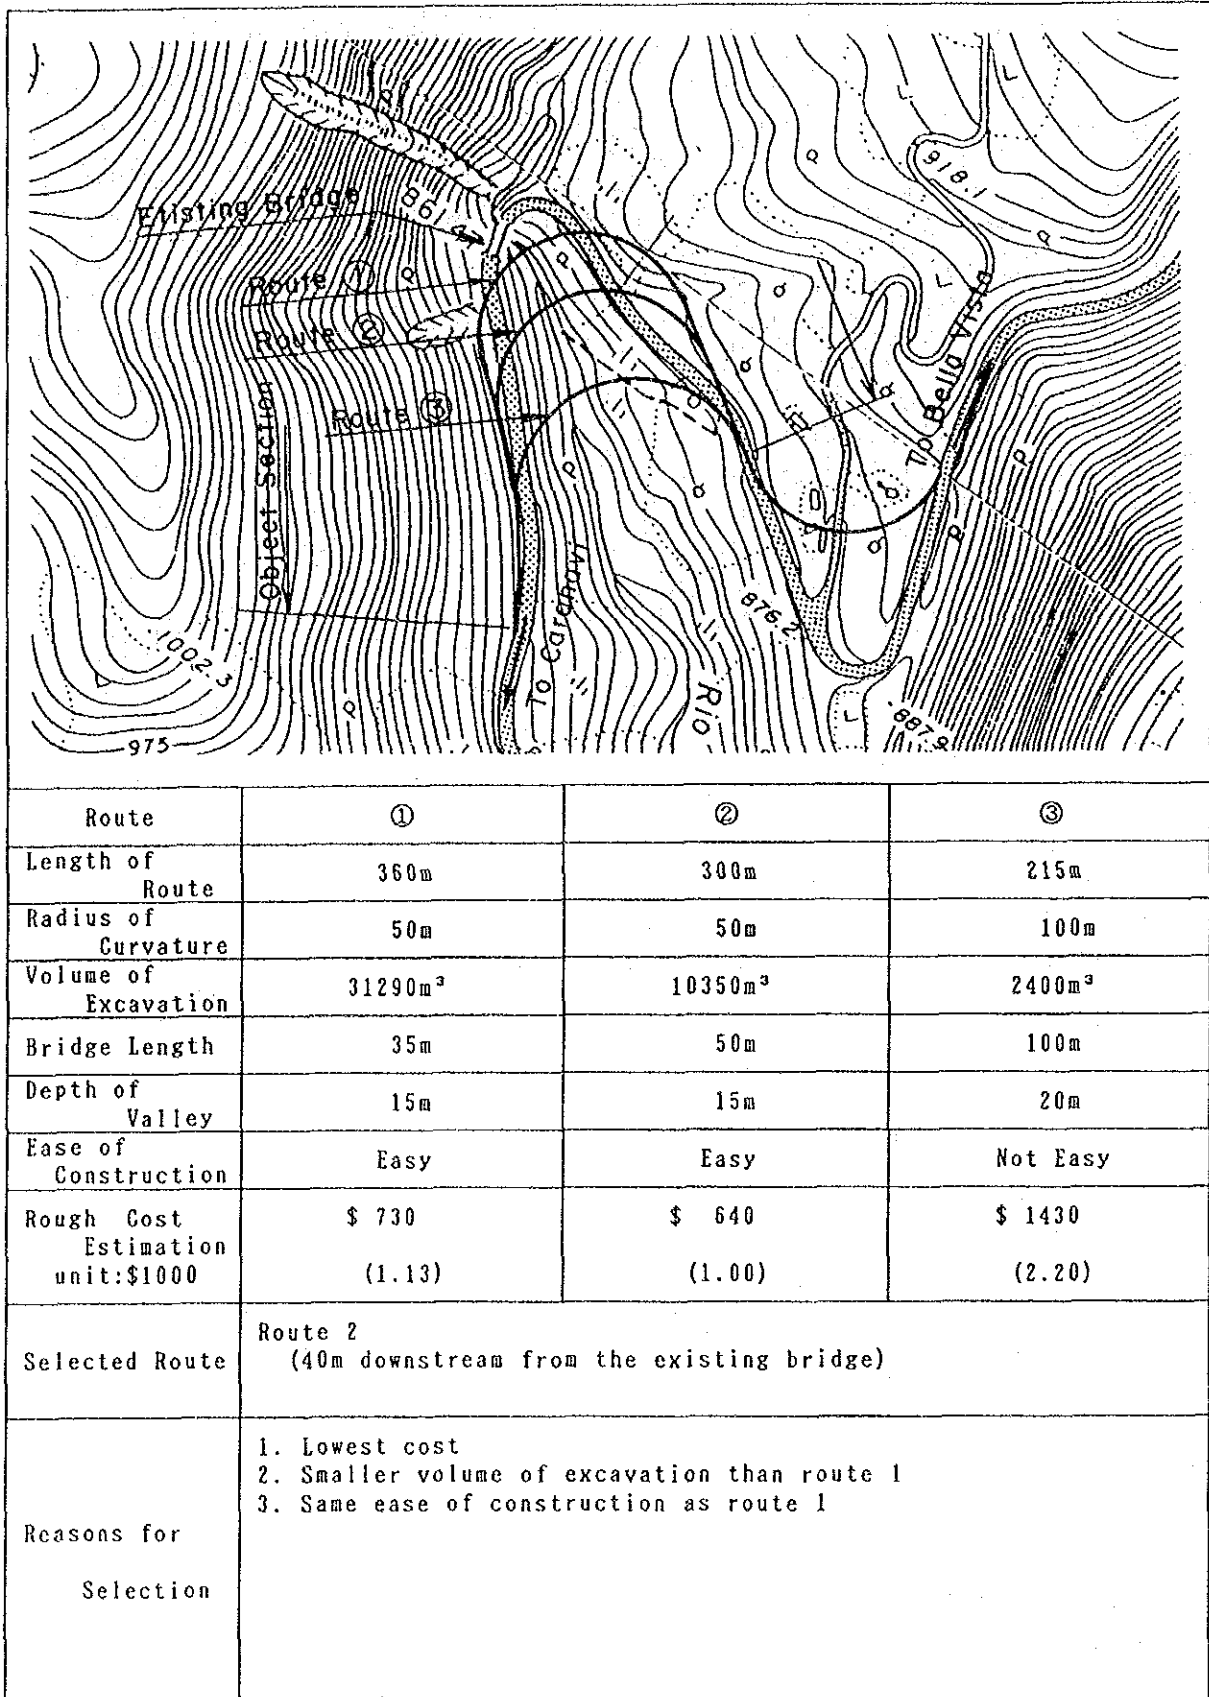 Etisting Bridge
861.4
Route ①
Route ②
Route ③
Object Section
To Caranavi
To Bella Vista
Rio
918.1
876.2
887.9
1002.3
975
Route ① ② ③
Length of Route 360m 300m 215m
Radius of Curvature 50m 50m 100m
Volume of Excavation 31290m³ 10350m³ 2400m³
Bridge Length 35m 50m 100m
Depth of Valley 15m 15m 20m
Ease of Construction Easy Easy Not Easy
Rough Cost Estimation unit:$1000 $ 730 $ 640 $ 1430
(1.13) (1.00) (2.20)
Selected Route Route 2
(40m downstream from the existing bridge)
Reasons for Selection
1. Lowest cost
2. Smaller volume of excavation than route 1
3. Same ease of construction as route 1